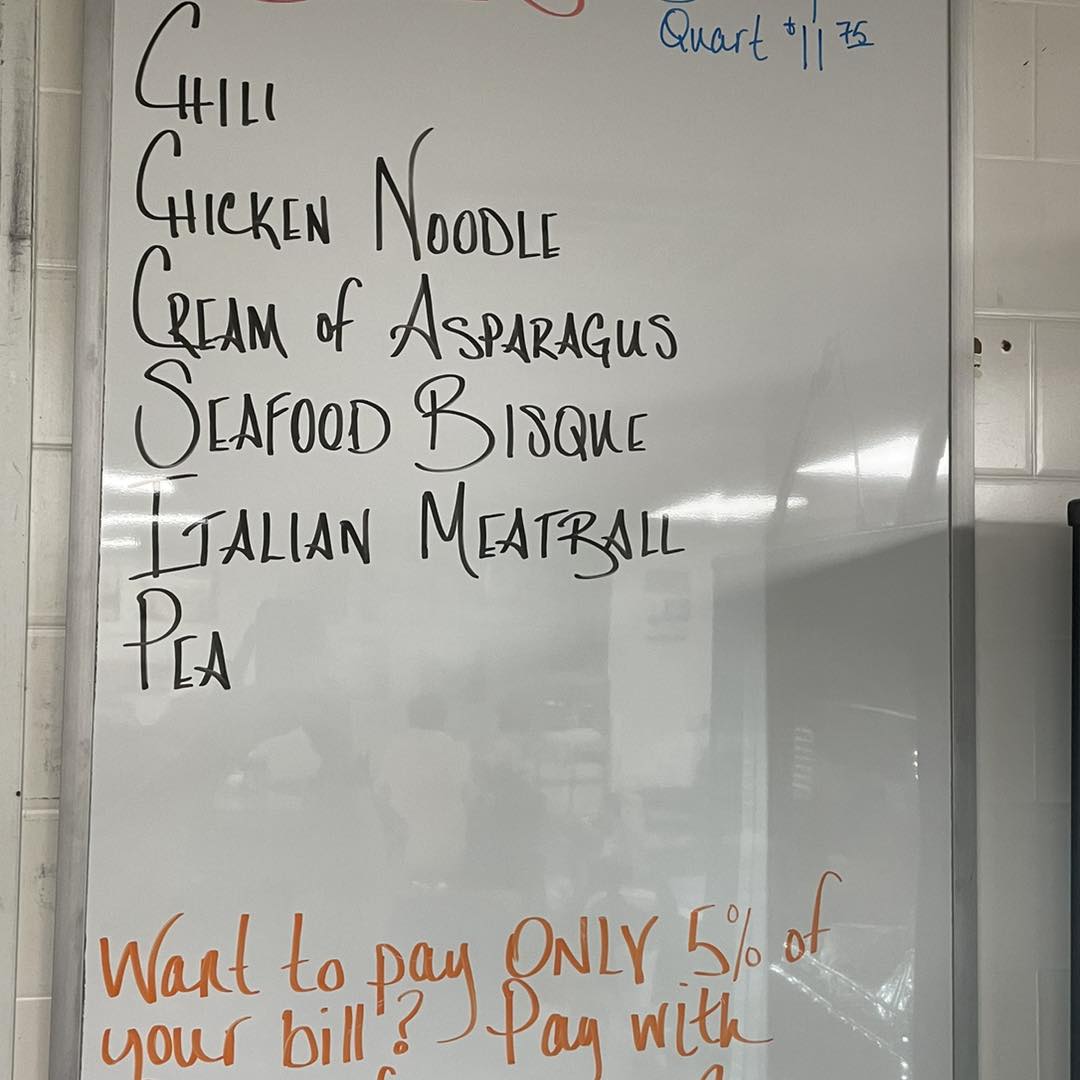 Quart $11 75
CHILI
CHICKEN NOODLE
CREAM of ASPARAGUS
SEAFOOD BISQUE
ITALIAN MEATBALL
PEA
Want to pay ONLY 5% of
your bill? Pay with